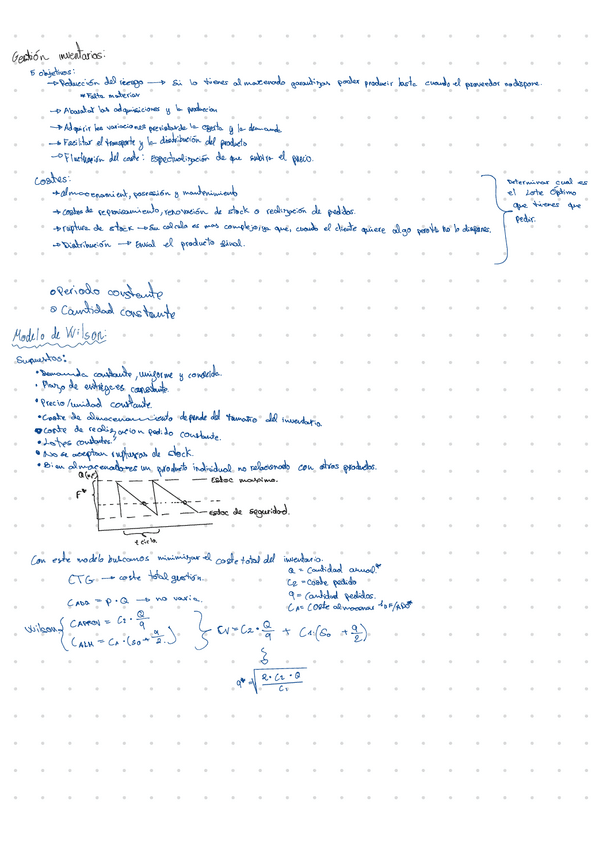 Gestión inventarios:
5 objetivos:
→ Reducción del riesgo → Si lo tienes almacenado garantizas poder producir hasta cuando el proveedor no dispone.
* Falta material
→ Abaratar las adquisiciones y la producción
→ Adquirir las variaciones previstas de la oferta y la demanda
→ Facilitar el transporte y la distribución del producto
→ Fluctuación del coste: Especualización de que subira el precio.
Costes:
→ almacenamient, posesión y mantenimiento
→ costes de reprovisamiento, renovación de stock o realización de pedidos.
→ ruptura de stock → Su calculo es mas complejo ya que, cuando el cliente quiere algo no lo dispones.
→ Distribución → Envial el producto final.
Determinar cual es
el Lote Óptimo
que tienes que
pedir.
o Periodo constante
o Cantidad constante
Modelo de Wilson:
Supuestos:
• Demanda constante, uniforme y conocida.
• Plazo de entrega es constante.
• Precio/unidad constante.
• Coste de almacenamiento depende del tamaño del inventario
• Coste de realización pedido constante.
• Lotes constantes?
• No se aceptan rupturas de stock.
• Bien almacenado es un producto individual no relacionado con otros productos.
estoc maximo.
F*
estoc de seguridad.
t ciclo
Con este modelo buscamos minimizar el coste total del inventario.
CTG → coste total gestión.
Q = Cantidad anual*
C2 = Coste pedido
q = cantidad pedidos.
CADQ = P · Q → no varia.
Wilson { CAPROV = C2 · Q/q
CALM = C1 · (S0 + q/2)
CV = C2 · Q/q + C1 · (S0 + q/2)
q* = √(2 · C2 · Q / C1)